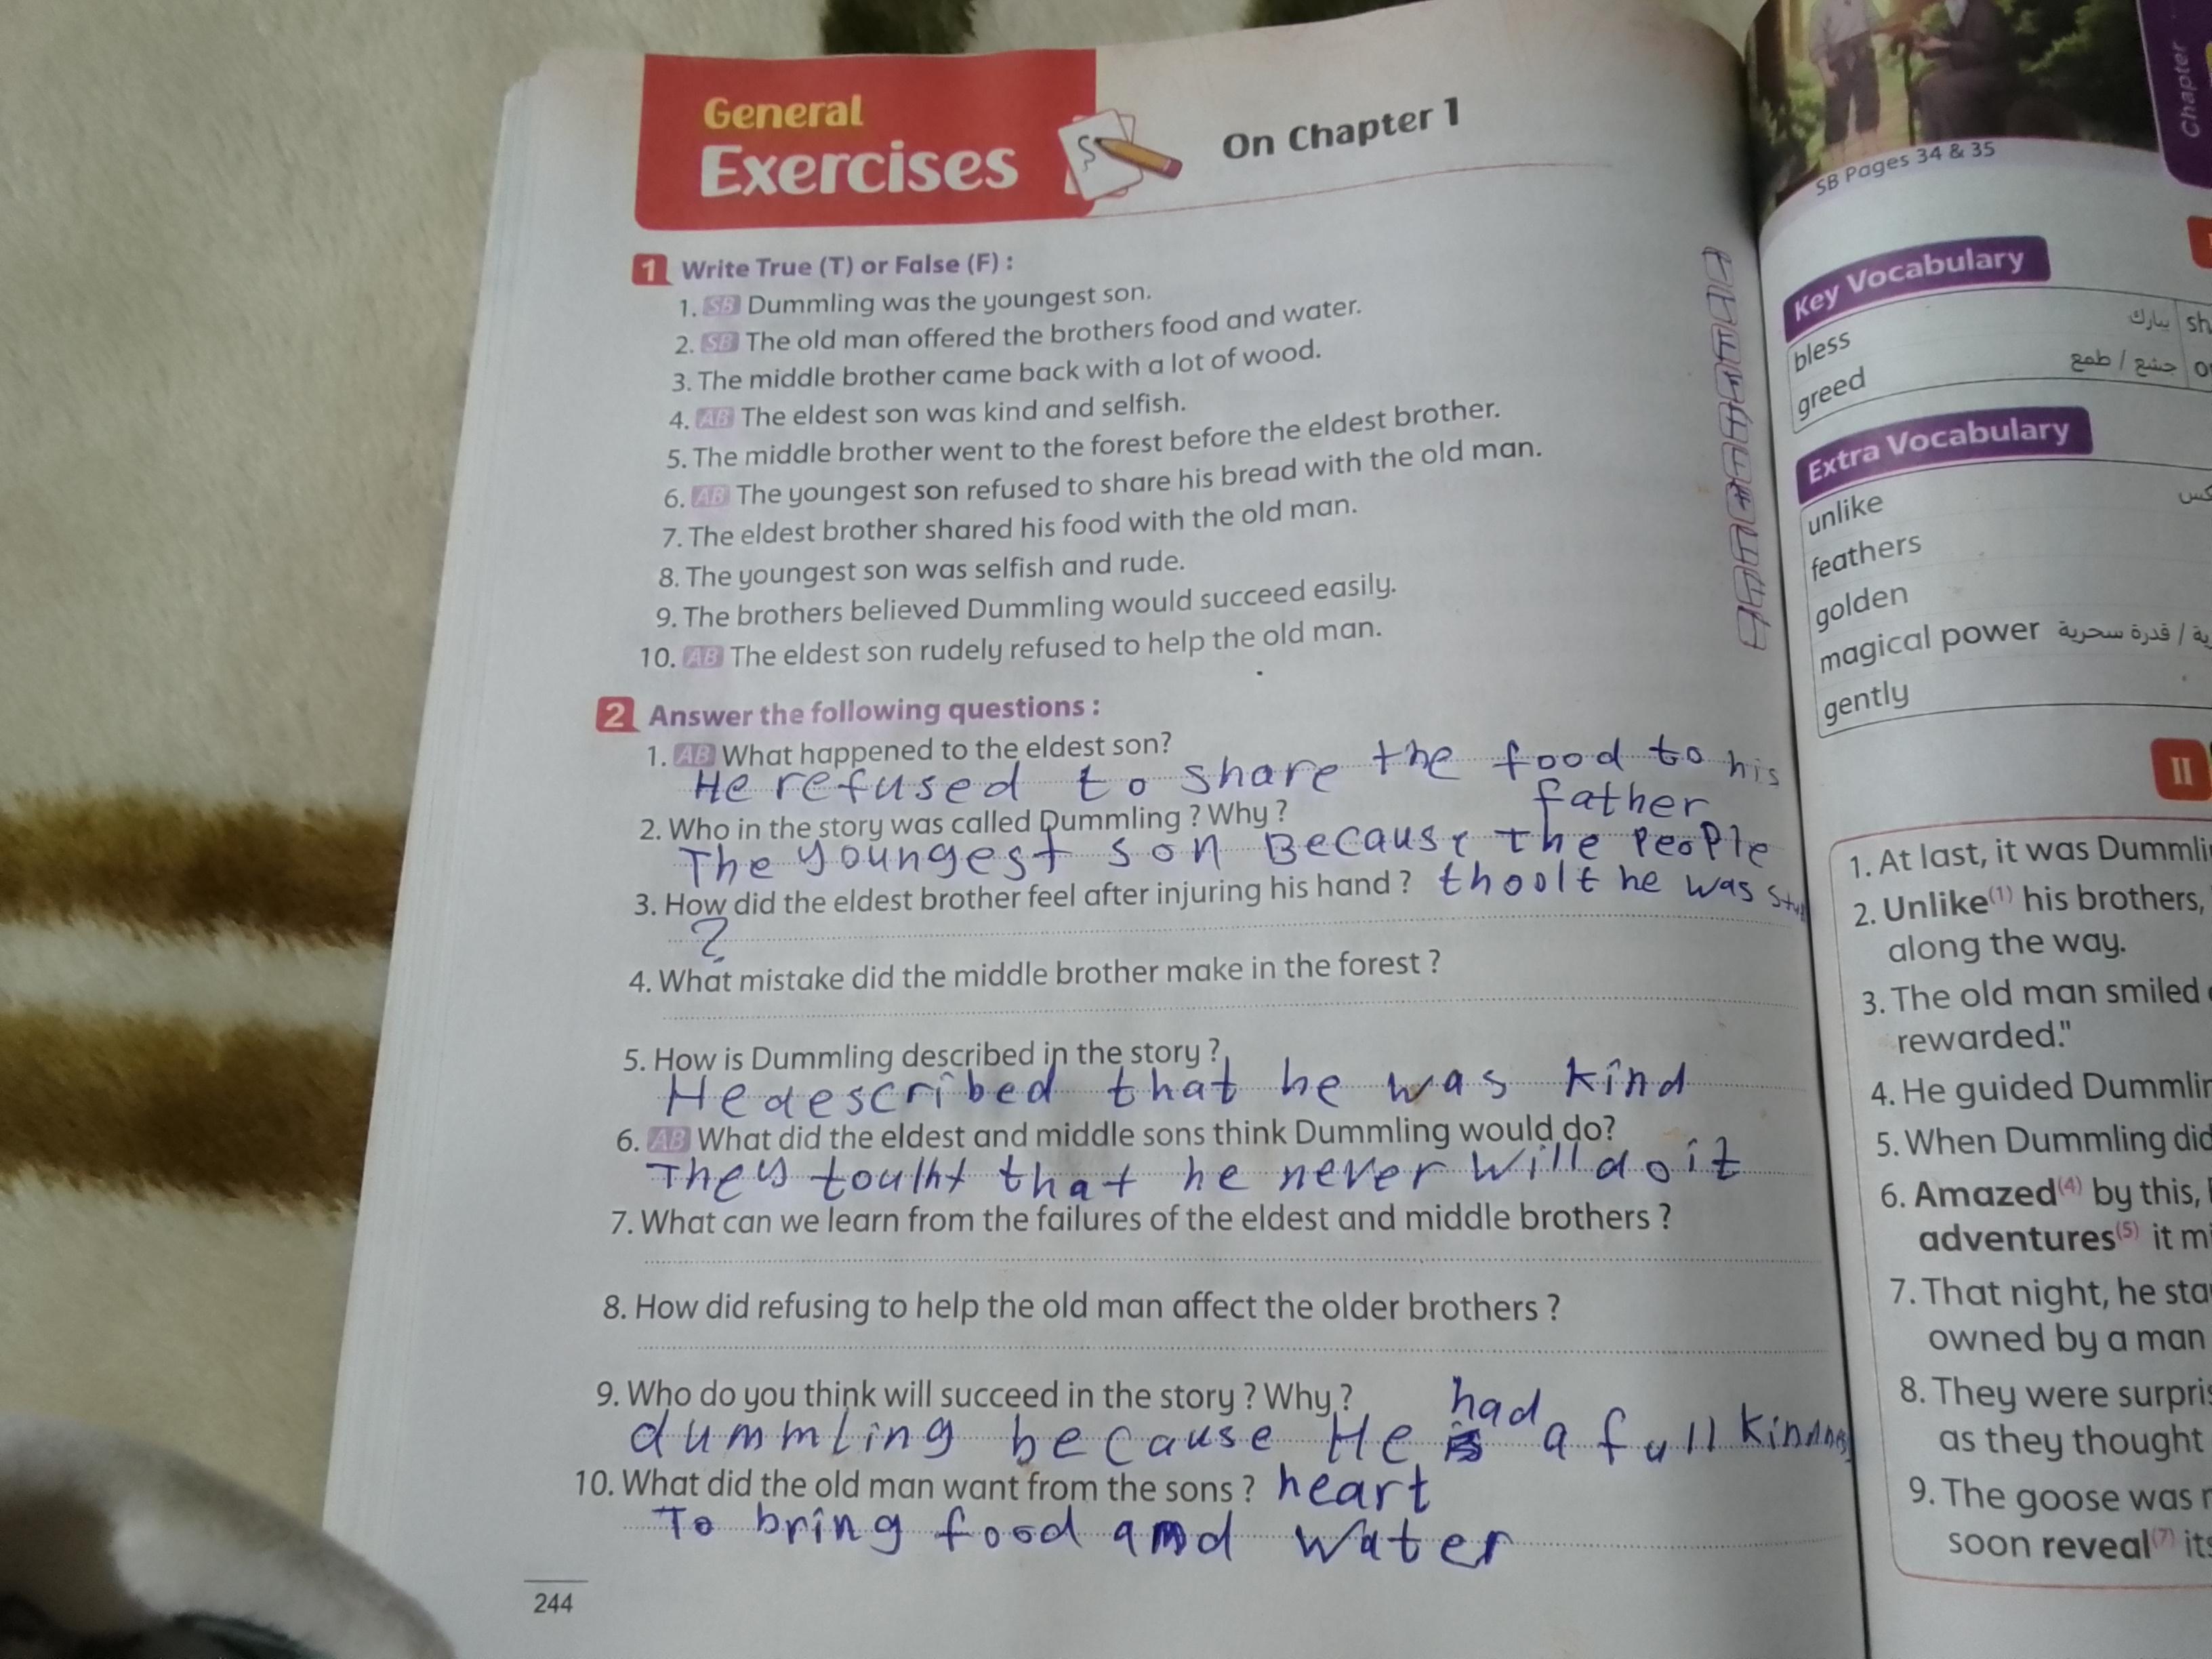 General
Exercises
On Chapter 1
1 Write True (T) or False (F) :
1. SB Dummling was the youngest son.
2. SB The old man offered the brothers food and water.
3. The middle brother came back with a lot of wood.
4. AB The eldest son was kind and selfish.
5. The middle brother went to the forest before the eldest brother.
6. AB The youngest son refused to share his bread with the old man.
7. The eldest brother shared his food with the old man.
8. The youngest son was selfish and rude.
9. The brothers believed Dummling would succeed easily.
10. AB The eldest son rudely refused to help the old man.
2 Answer the following questions :
1. AB What happened to the eldest son?
He refused to share the food to his
father
2. Who in the story was called Dummling ? Why ?
The youngest son Because the People
thoolt he was
3. How did the eldest brother feel after injuring his hand ?
?
4. What mistake did the middle brother make in the forest ?
5. How is Dummling described in the story ?
He described that he was kind
6. AB What did the eldest and middle sons think Dummling would do?
They toulht that he never will do it
7. What can we learn from the failures of the eldest and middle brothers ?
8. How did refusing to help the old man affect the older brothers ?
9. Who do you think will succeed in the story ? Why ?
dummling because He had a full
heart
10. What did the old man want from the sons ?
To bring food and water
244
Chapter
SB Pages 34 & 35
Key Vocabulary
bless يبارك sh
greed جشع / طمع
Extra Vocabulary
unlike
feathers
golden
magical power قدرة سحرية /
gently
II
1. At last, it was Dummli
2. Unlike(1) his brothers,
along the way.
3. The old man smiled
rewarded."
4. He guided Dummlin
5. When Dummling did
6. Amazed(4) by this,
adventures(5) it mi
7. That night, he sta
owned by a man
8. They were surpris
as they thought
9. The goose was
soon reveal(7) its